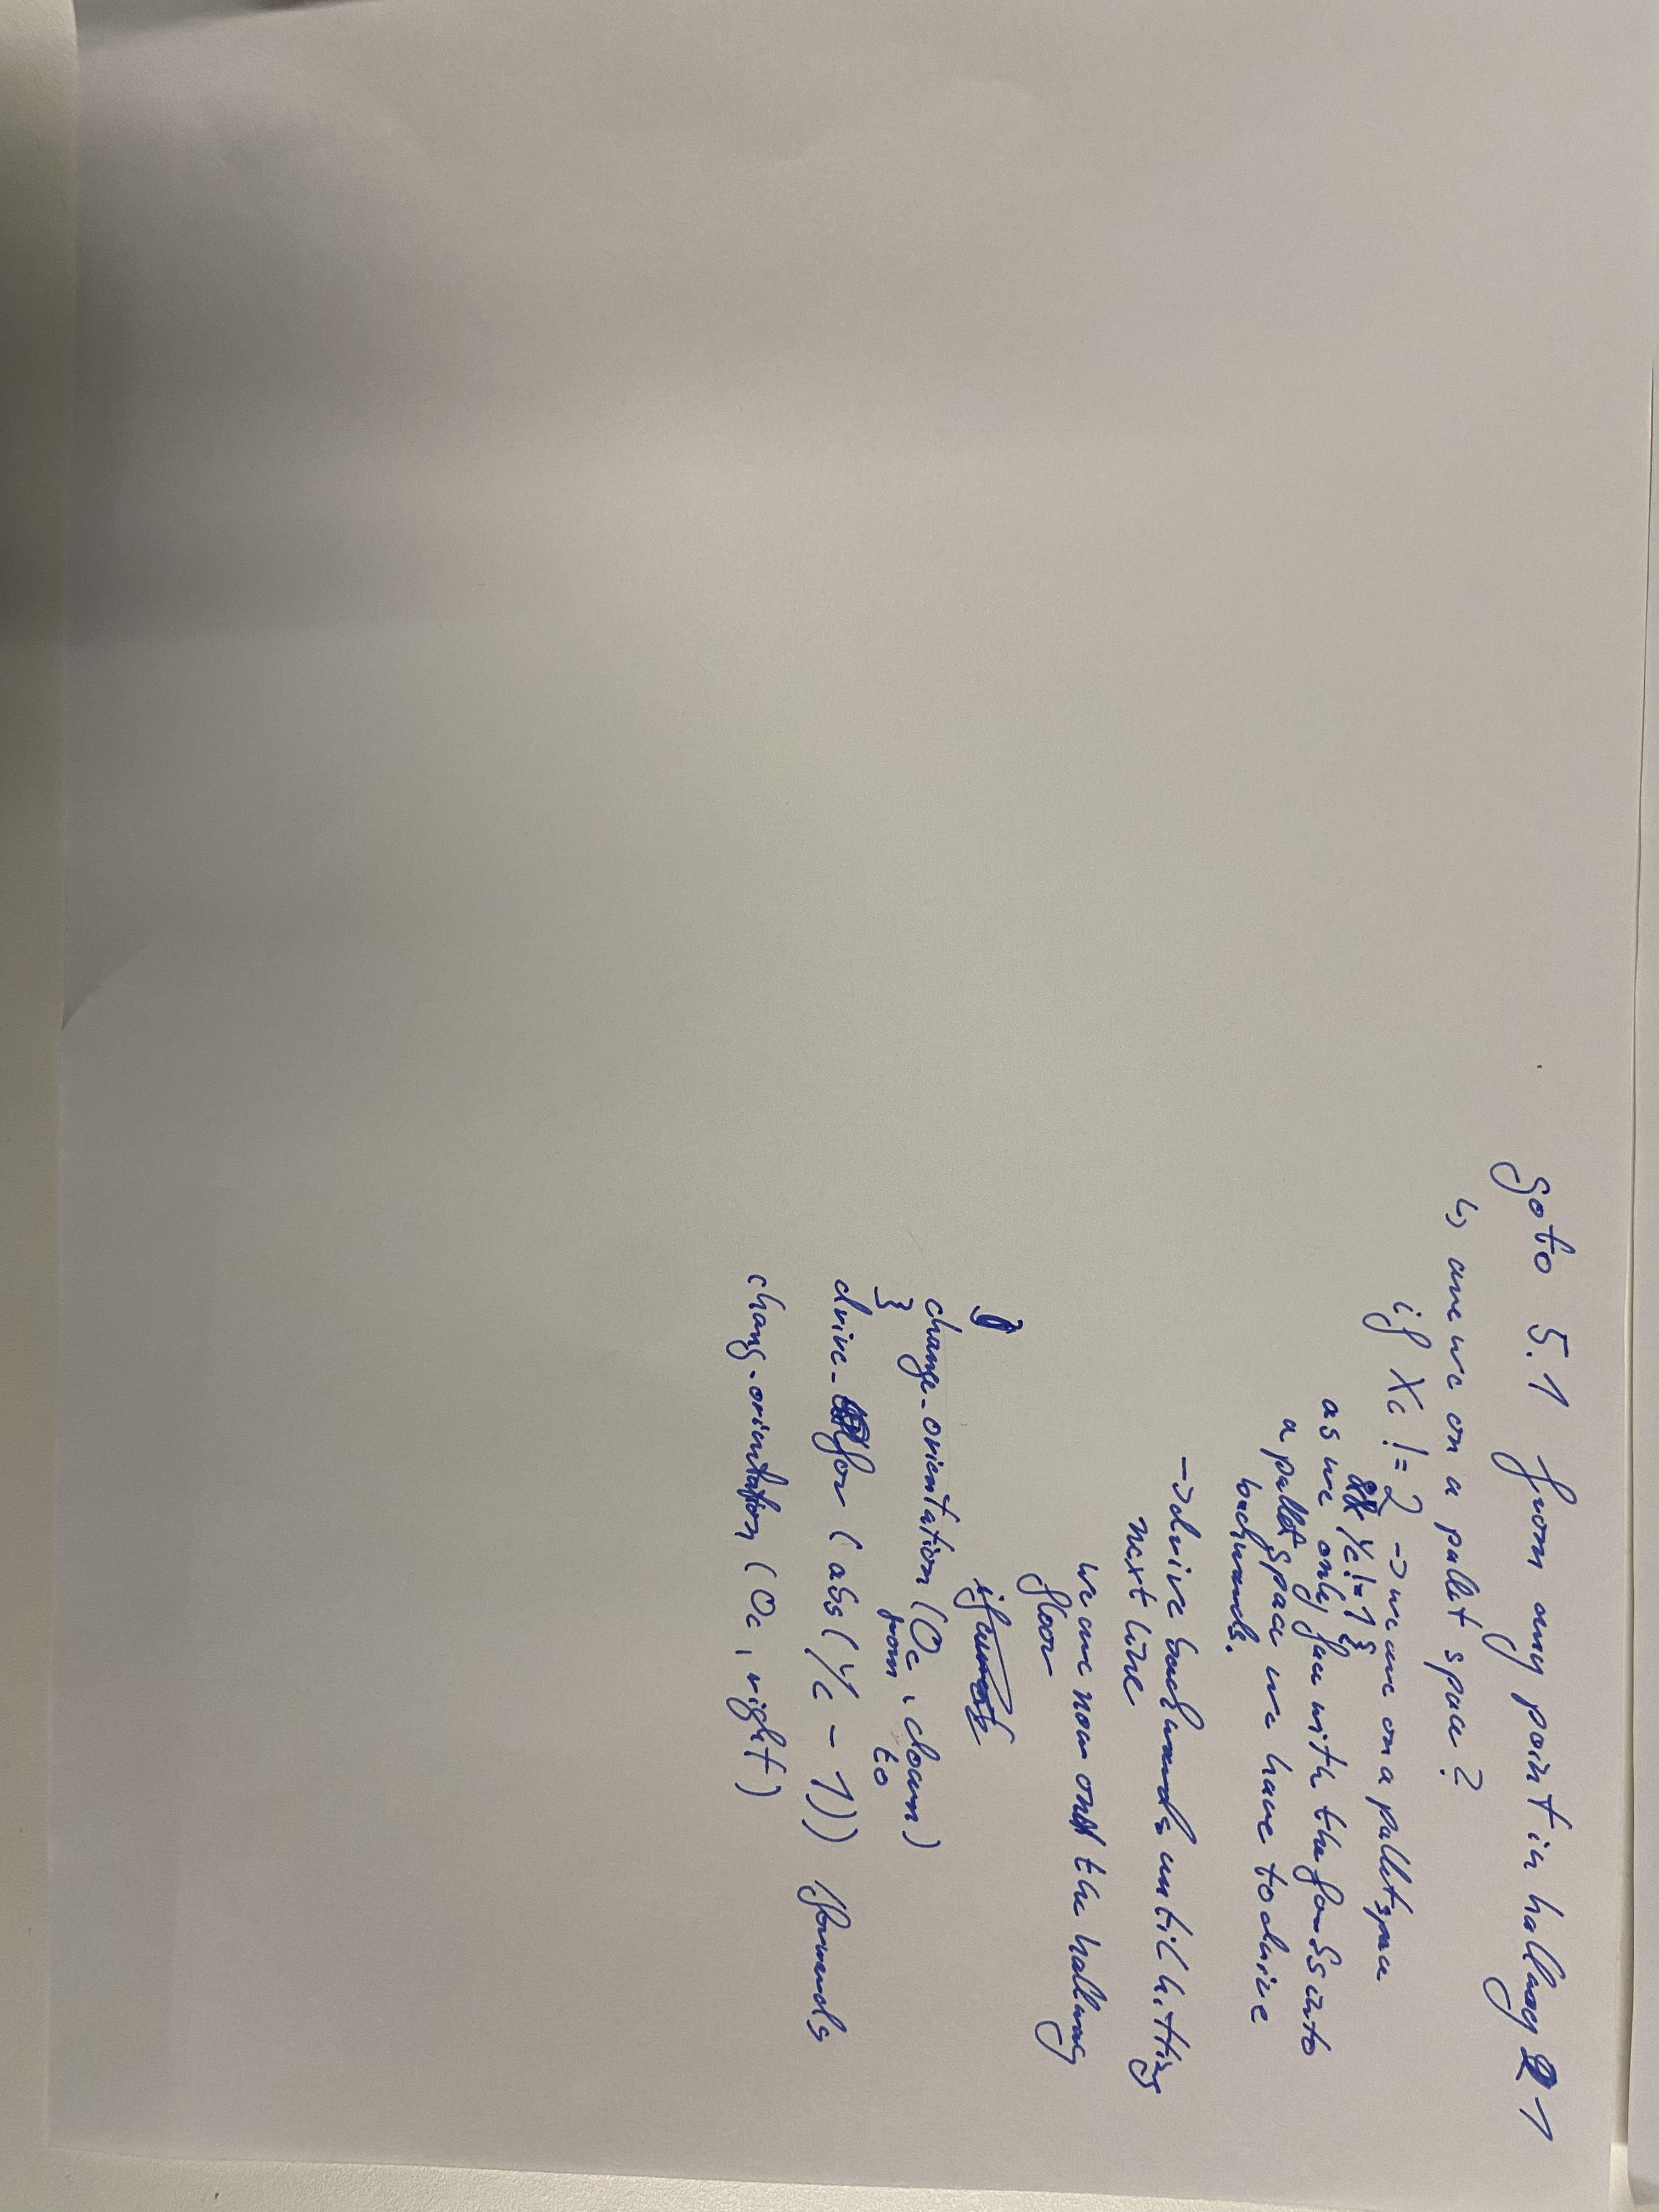 goto 5.1 from any point in hallway 1
↳ are we on a pallet space?
if Xc != 2 -> we are on a pallet space
&& Yc != 1 {
as we only face with the forks into
a pallet space we have to drive
backwards.
-> drive backwards until hitting
next line
we are now on the hallway
floor
change_orientation (Oc, down)
from to
}
drive_for (abs (Yc - 1)) forwards
chang_orientation (Oc, right)